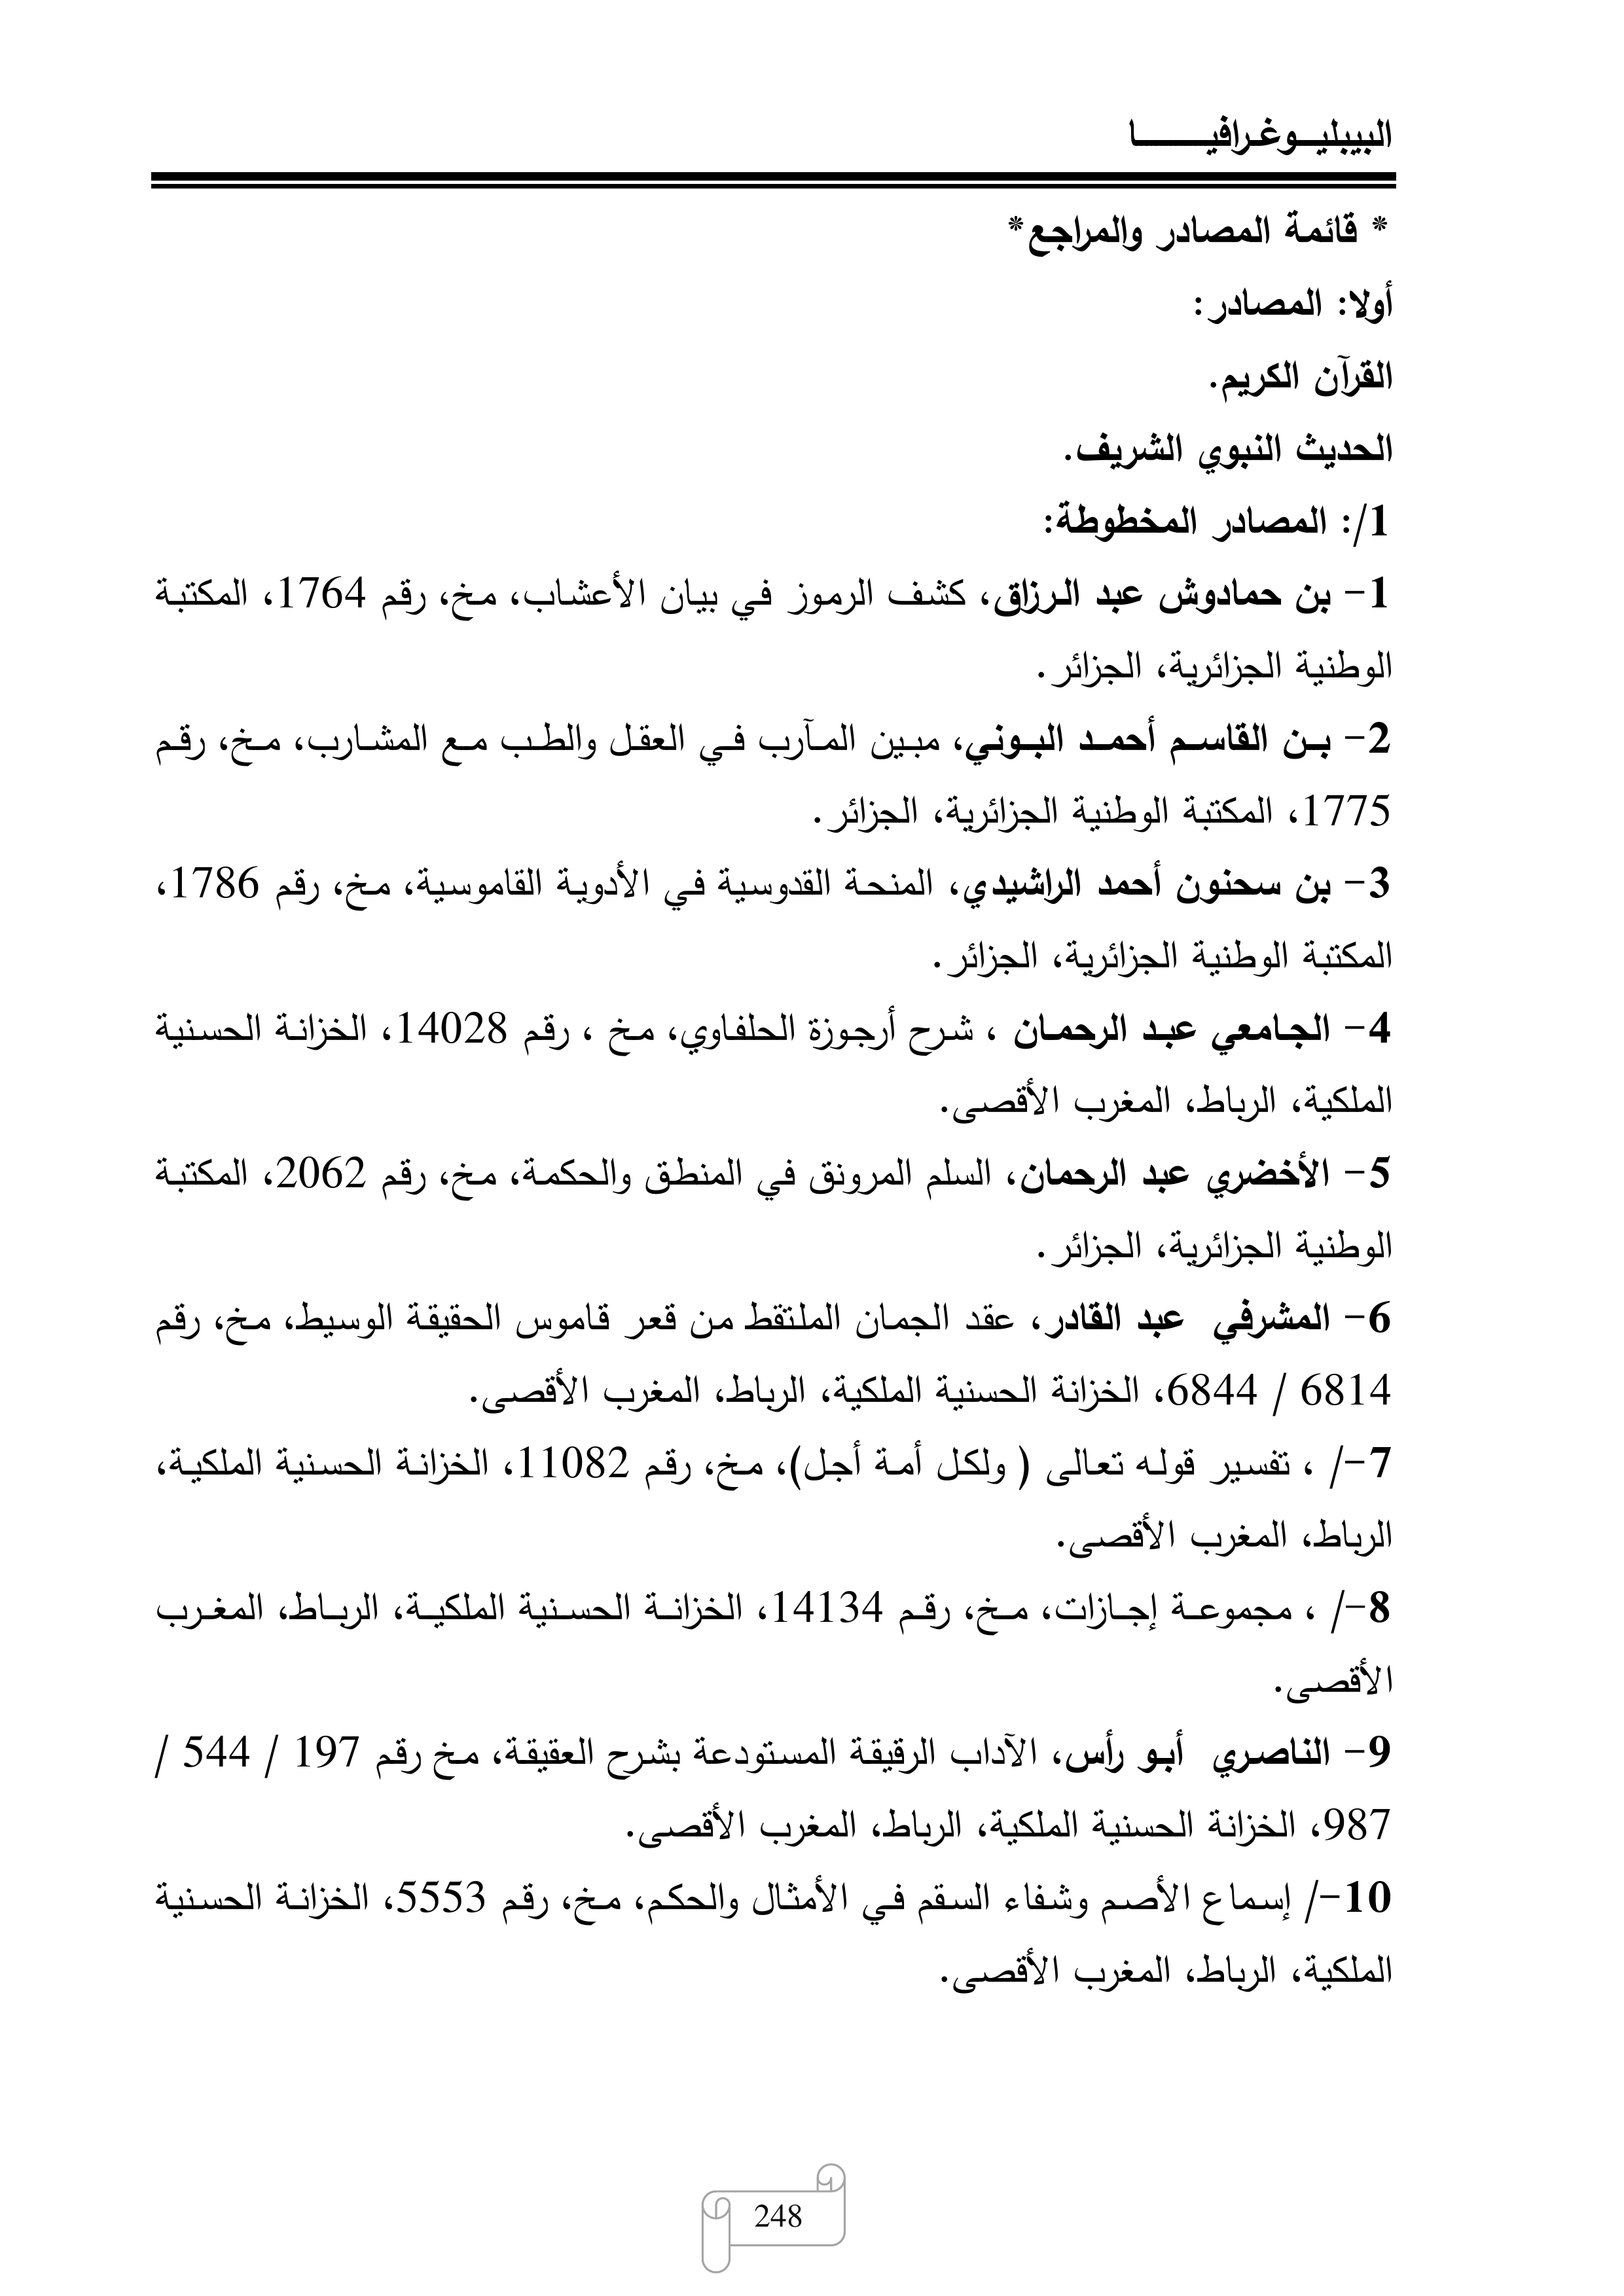 البيبليـــوغـرافيــــــــا
* قائمة المصادر والمراجع*
أولا: المصادر:
القرآن الكريم.
الحديث النبوي الشريف.
1/: المصادر المخطوطة:
1- بن حمادوش عبد الرزاق، كشف الرموز في بيان الأعشاب، مخ، رقم 1764، المكتبة
الوطنية الجزائرية، الجزائر.
2- بن القاسم أحمد البوني، مبين المآرب في العقل والطب مع المشارب، مخ، رقم
1775، المكتبة الوطنية الجزائرية، الجزائر.
3- بن سحنون أحمد الراشيدي، المنحة القدوسية في الأدوية القاموسية، مخ، رقم 1786،
المكتبة الوطنية الجزائرية، الجزائر.
4- الجامعي عبد الرحمان ، شرح أرجوزة الحلفاوي، مخ ، رقم 14028، الخزانة الحسنية
الملكية، الرباط، المغرب الأقصى.
5- الأخضري عبد الرحمان، السلم المرونق في المنطق والحكمة، مخ، رقم 2062، المكتبة
الوطنية الجزائرية، الجزائر.
6- المشرفي عبد القادر، عقد الجمان الملتقط من قعر قاموس الحقيقة الوسيط، مخ، رقم
6814 / 6844، الخزانة الحسنية الملكية، الرباط، المغرب الأقصى.
7-/ ، تفسير قوله تعالى ( ولكل أمة أجل)، مخ، رقم 11082، الخزانة الحسنية الملكية،
الرباط، المغرب الأقصى.
8-/ ، مجموعة إجازات، مخ، رقم 14134، الخزانة الحسنية الملكية، الرباط، المغرب
الأقصى.
9- الناصري أبو رأس، الآداب الرقيقة المستودعة بشرح العقيقة، مخ رقم 197 / 544 /
987، الخزانة الحسنية الملكية، الرباط، المغرب الأقصى.
10-/ إسماع الأصم وشفاء السقم في الأمثال والحكم، مخ، رقم 5553، الخزانة الحسنية
الملكية، الرباط، المغرب الأقصى.
248